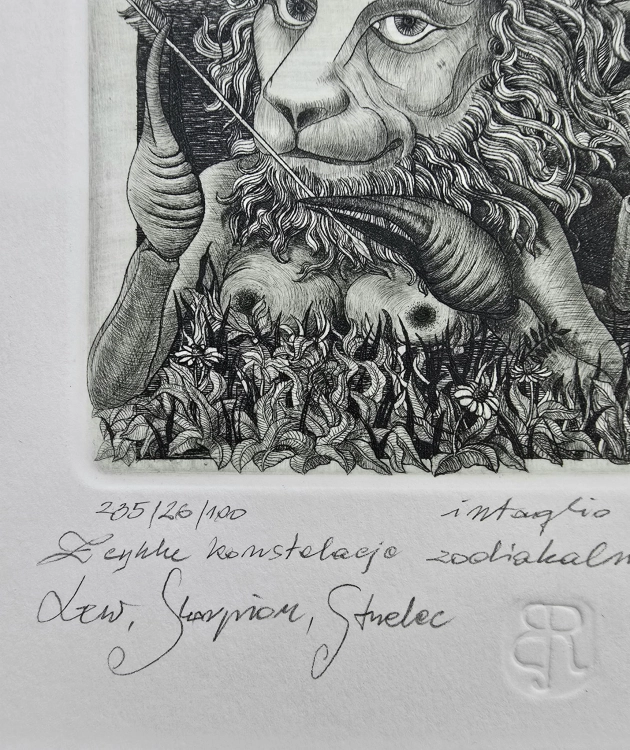 235/26/100 intaglio
Z cyklu konstelacje zodiakaln
Lew, Skorpion, Strzelec
BR